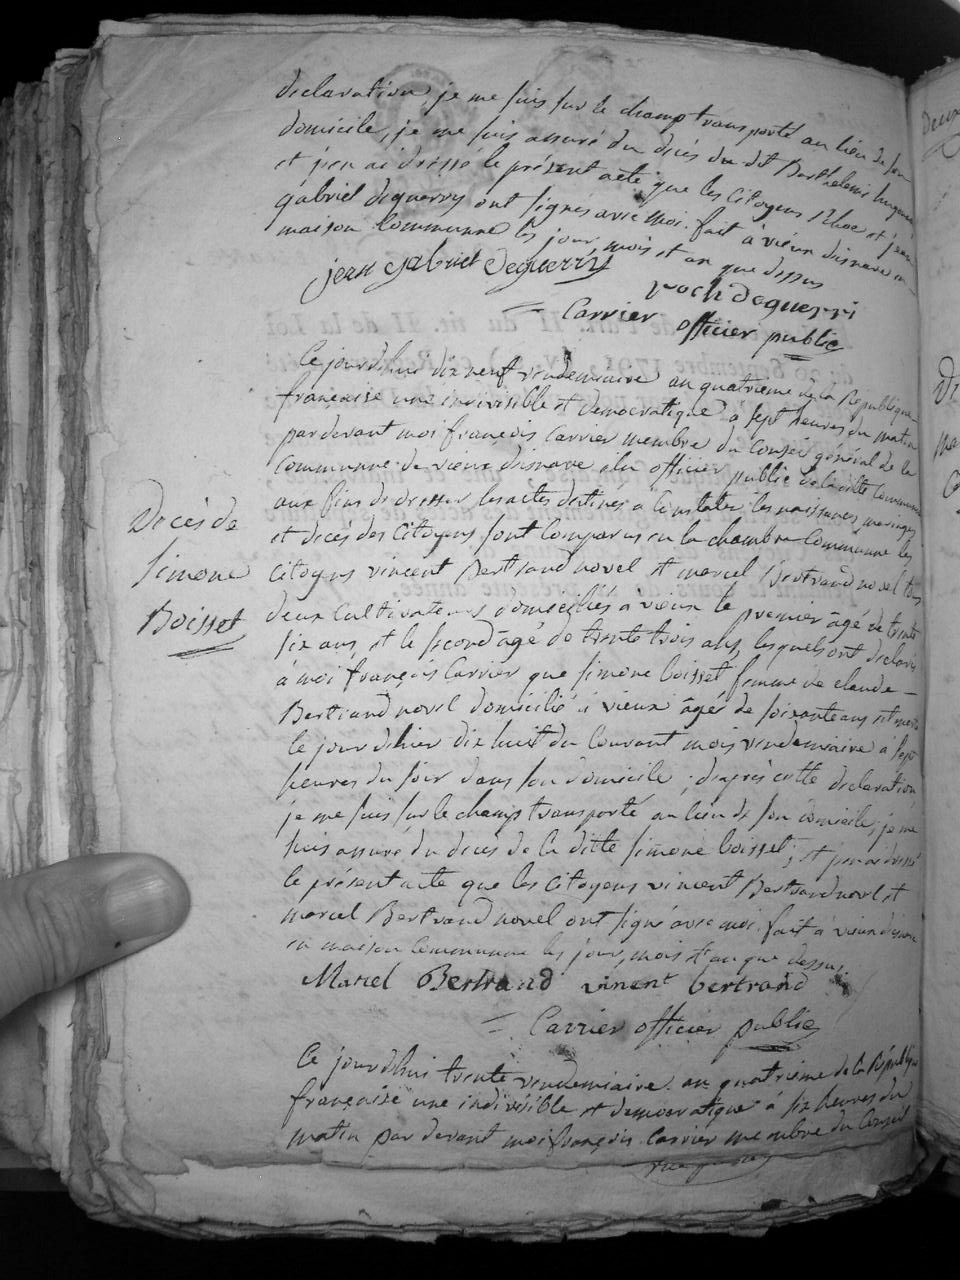 declaration, je me suis sur le champ transporté au lieu de son
domicile, je me suis assuré du décès du dit Barthelemi
et j'en ai dressé le présent acte que les Citoyens Rhoc et jean
gabriel deguerry ont signés avec moi. fait à vieux disnave en
maison Commune les jour, mois et an que dessus
jean Gabriel Deguerry
roch deguerri
Carrier officier public
Ce jourdhui dix neuf vendemiaire an quatrieme de la République
française une indivisible et democratique a sept heures du matin
par devant moi françois Carrier membre du Conseil général de la
Commune de vieux disnave élu officier public de la ditte Commune
aux fins de dresser les actes destinés a Constater les naissances mariages
et décès des Citoyens sont Comparus en la chambre Commune les
Décès de
Simone
Boisset
Citoyens vincent Bertrand novel et marcel Bertrand novel tous
deux Cultivateurs domiciliés à vieux le premier âgé de trente
six ans, et le second âgé de trente trois ans, lesquels ont déclaré
à moi françois Carrier que Simone boisset femme de claude
Bertrand novel domicilié à vieux âgé de soixante ans et morte
le jour dhier dix huit du Courant mois vendemiaire à sept
heures du soir dans son domicile ; daprès cette declaration
je me suis sur le champ transporté au lieu de son domicile, je me
suis assuré du décès de la ditte Simone boisset, et j'en ai dressé
le présent acte que les Citoyens vincent Bertrand novel et
marcel Bertrand novel ont signé avec moi. fait à vieux disnave
en maison Commune les jour, mois et an que dessus.
Marcel Bertrand vinent bertrand
Carrier officier public
Ce jourdhui trente vendemiaire an quatrieme de la République
française une indivisible et democratique à six heures du
matin par devant moi françois Carrier membre du Conseil